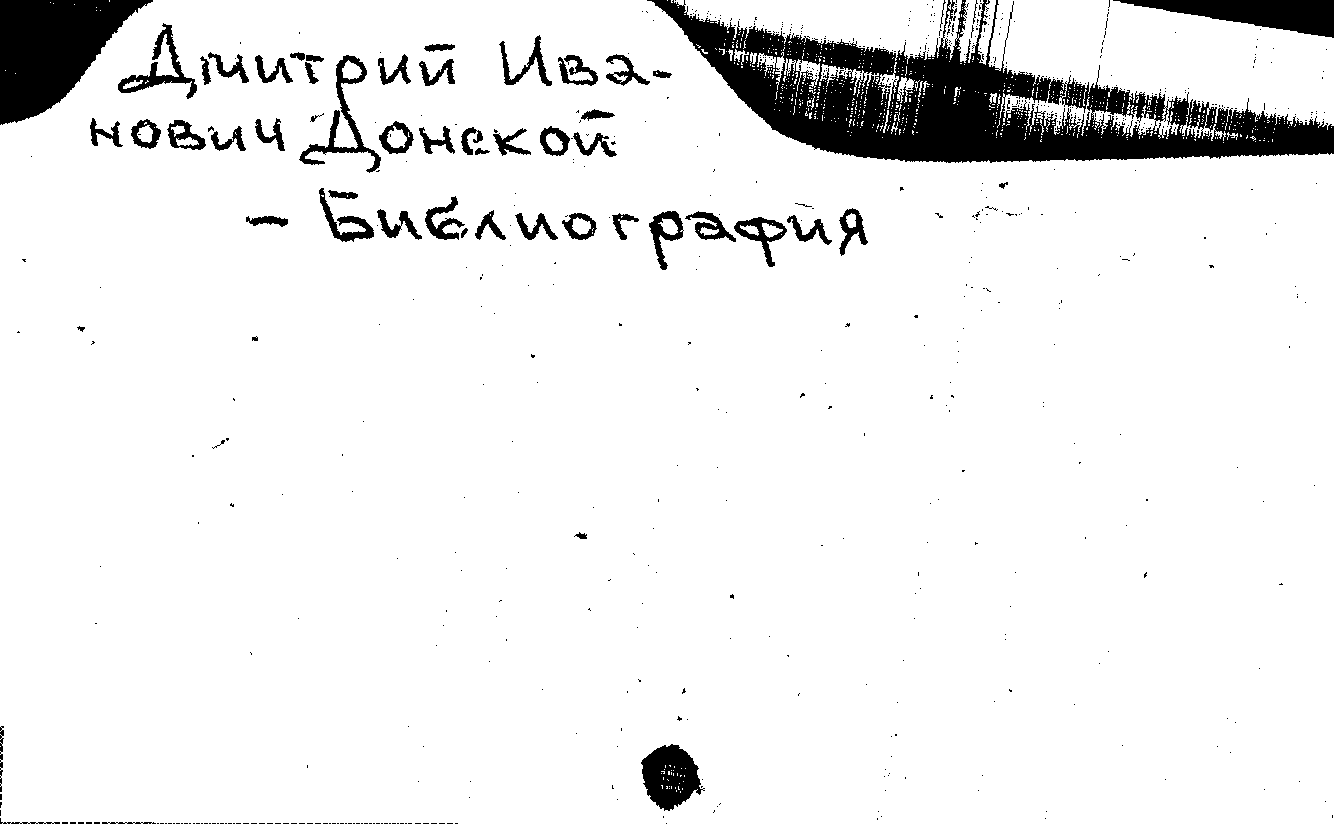 Дмитрий Ива-
нович Донской
- Библиография